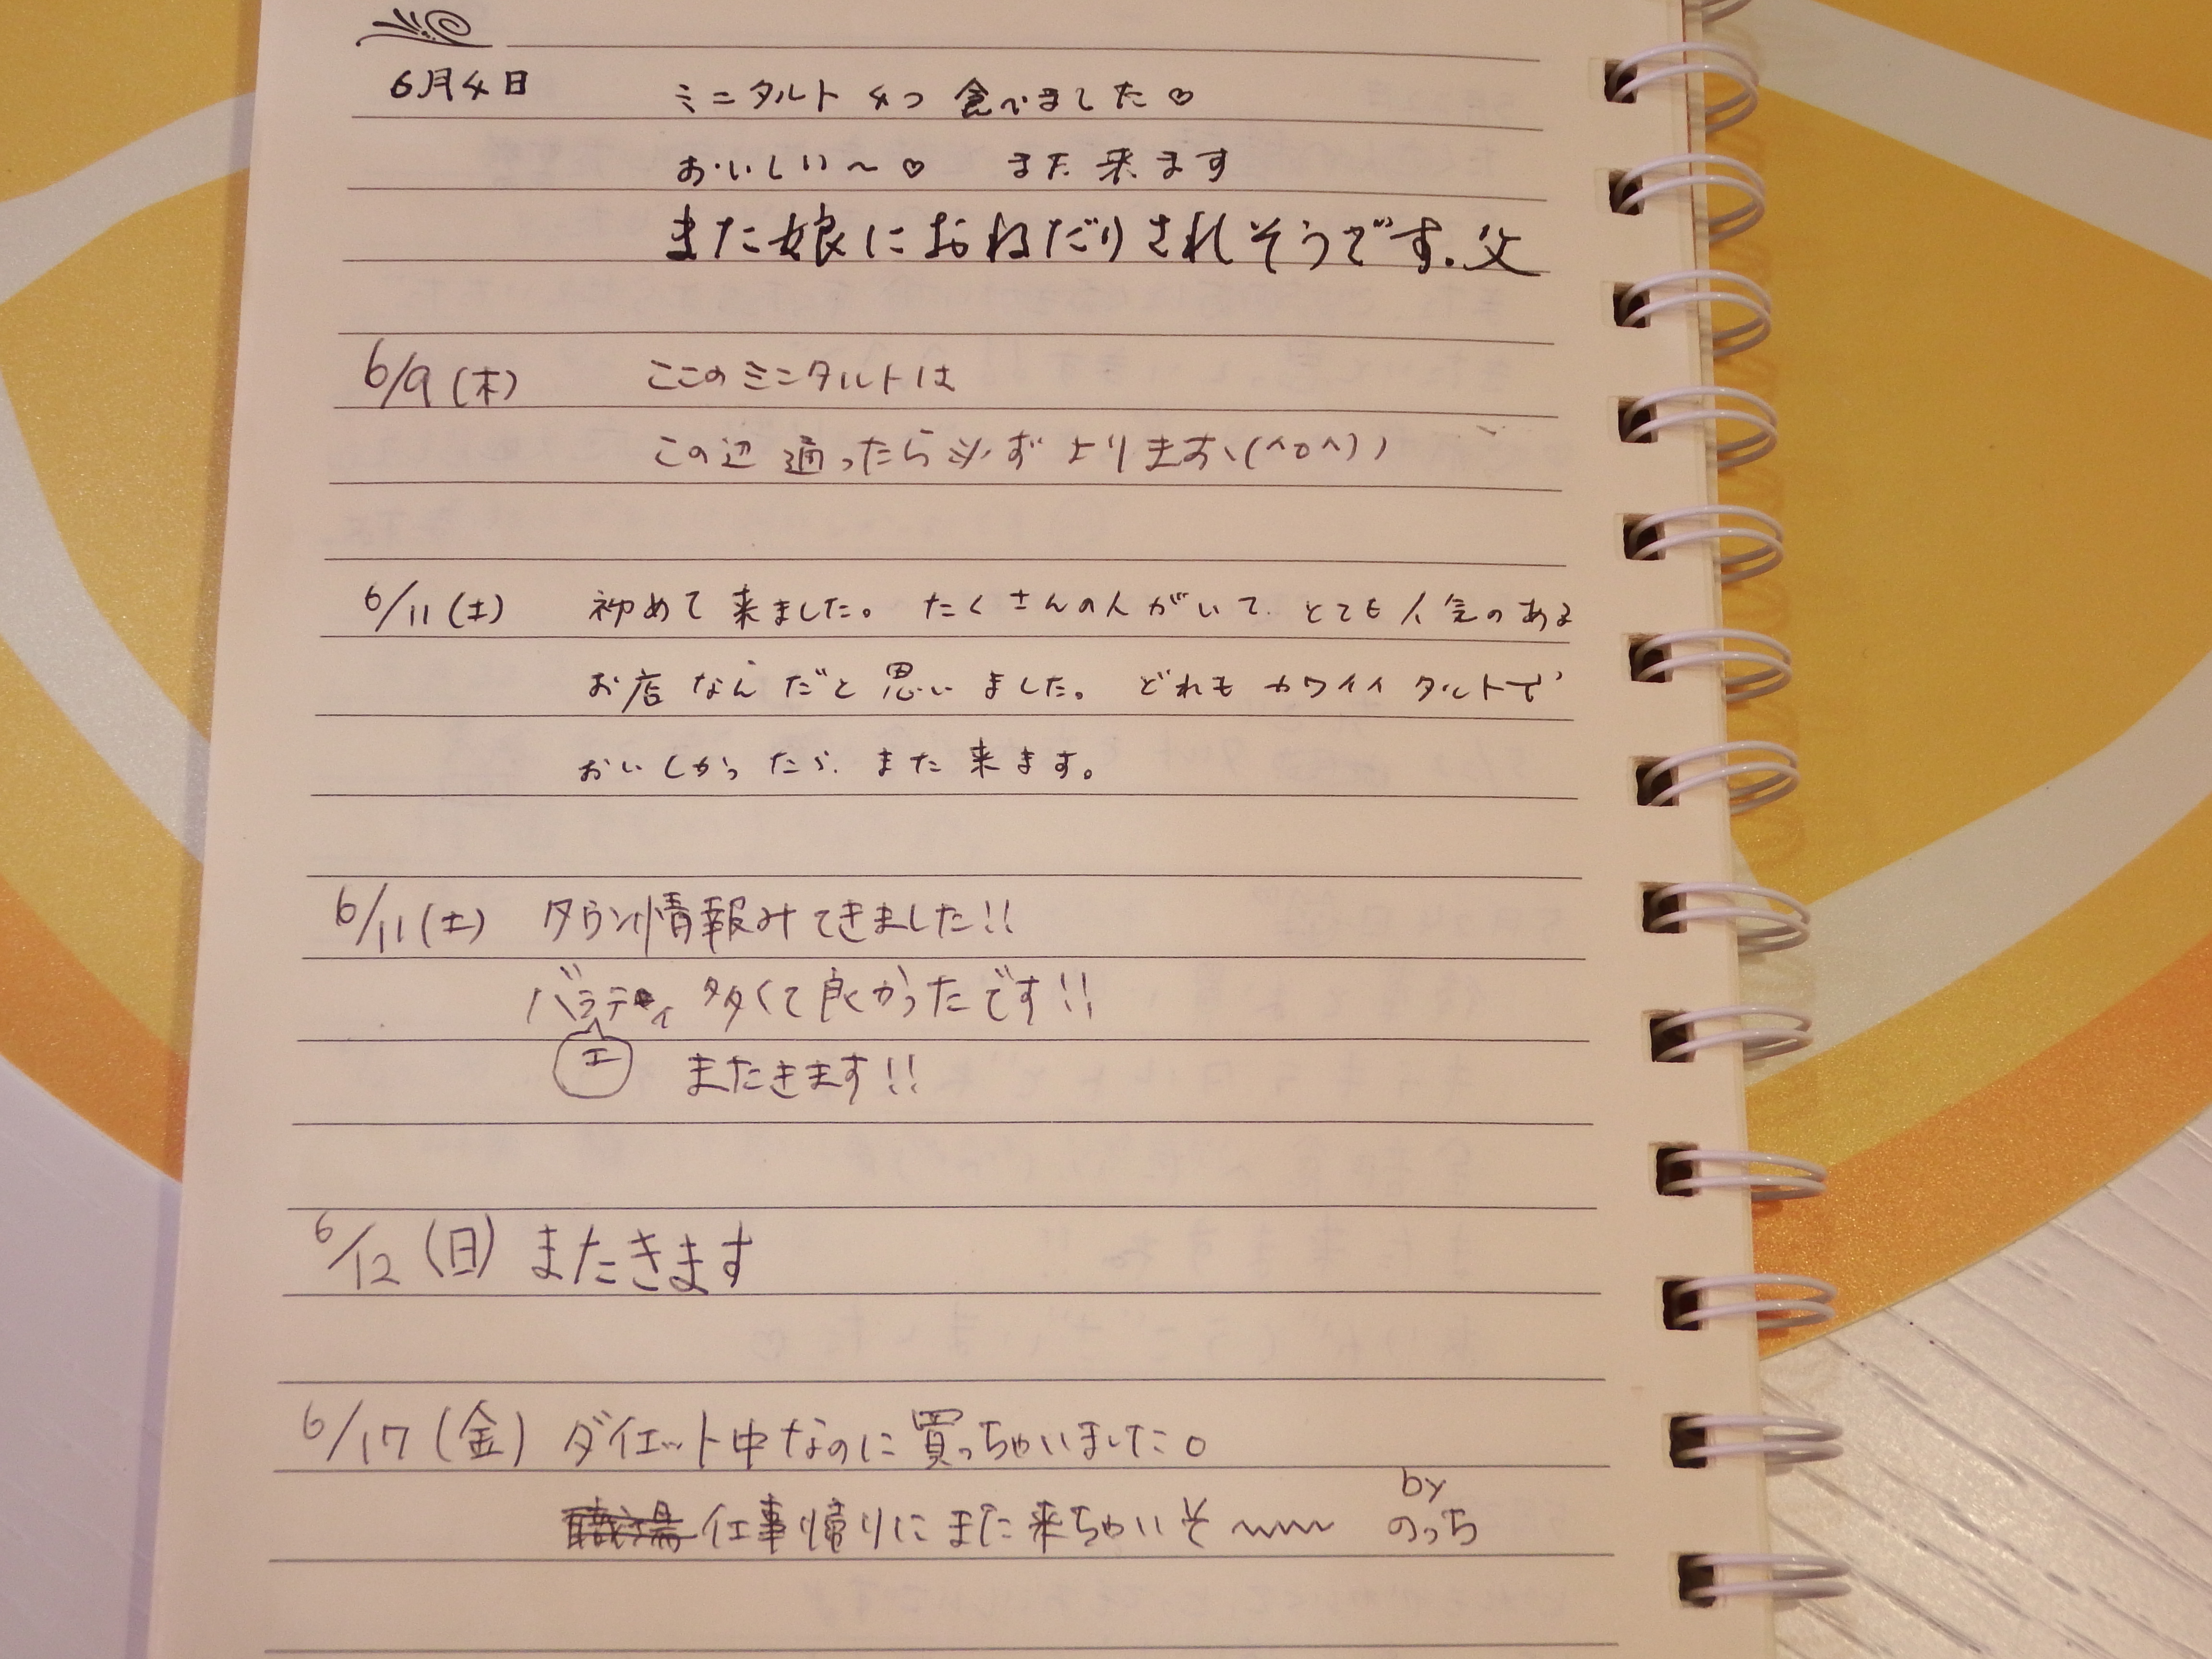 6月4日 ミニタルト 4つ 食べました♡
おいしい〜♡ また来ます
また娘におねだりされそうです.父
6/9(木) ここのミニタルトは
この辺 通ったら必ず よります、(^o^))
6/11(土) 初めて来ました。たくさんの人がいて.とても人気のある
お店なんだと思いました。どれもカワイイタルトで
おいしかったら.また来ます。
6/11(土) タウン情報みてきました!!
バラティ 多くて良かったです!!
エ またきます!!
6/12(日) またきます
6/17(金) ダイエット中なのに買っちゃいました。
by
仕事帰りにまた来ちゃいそ〜〜〜 のっち